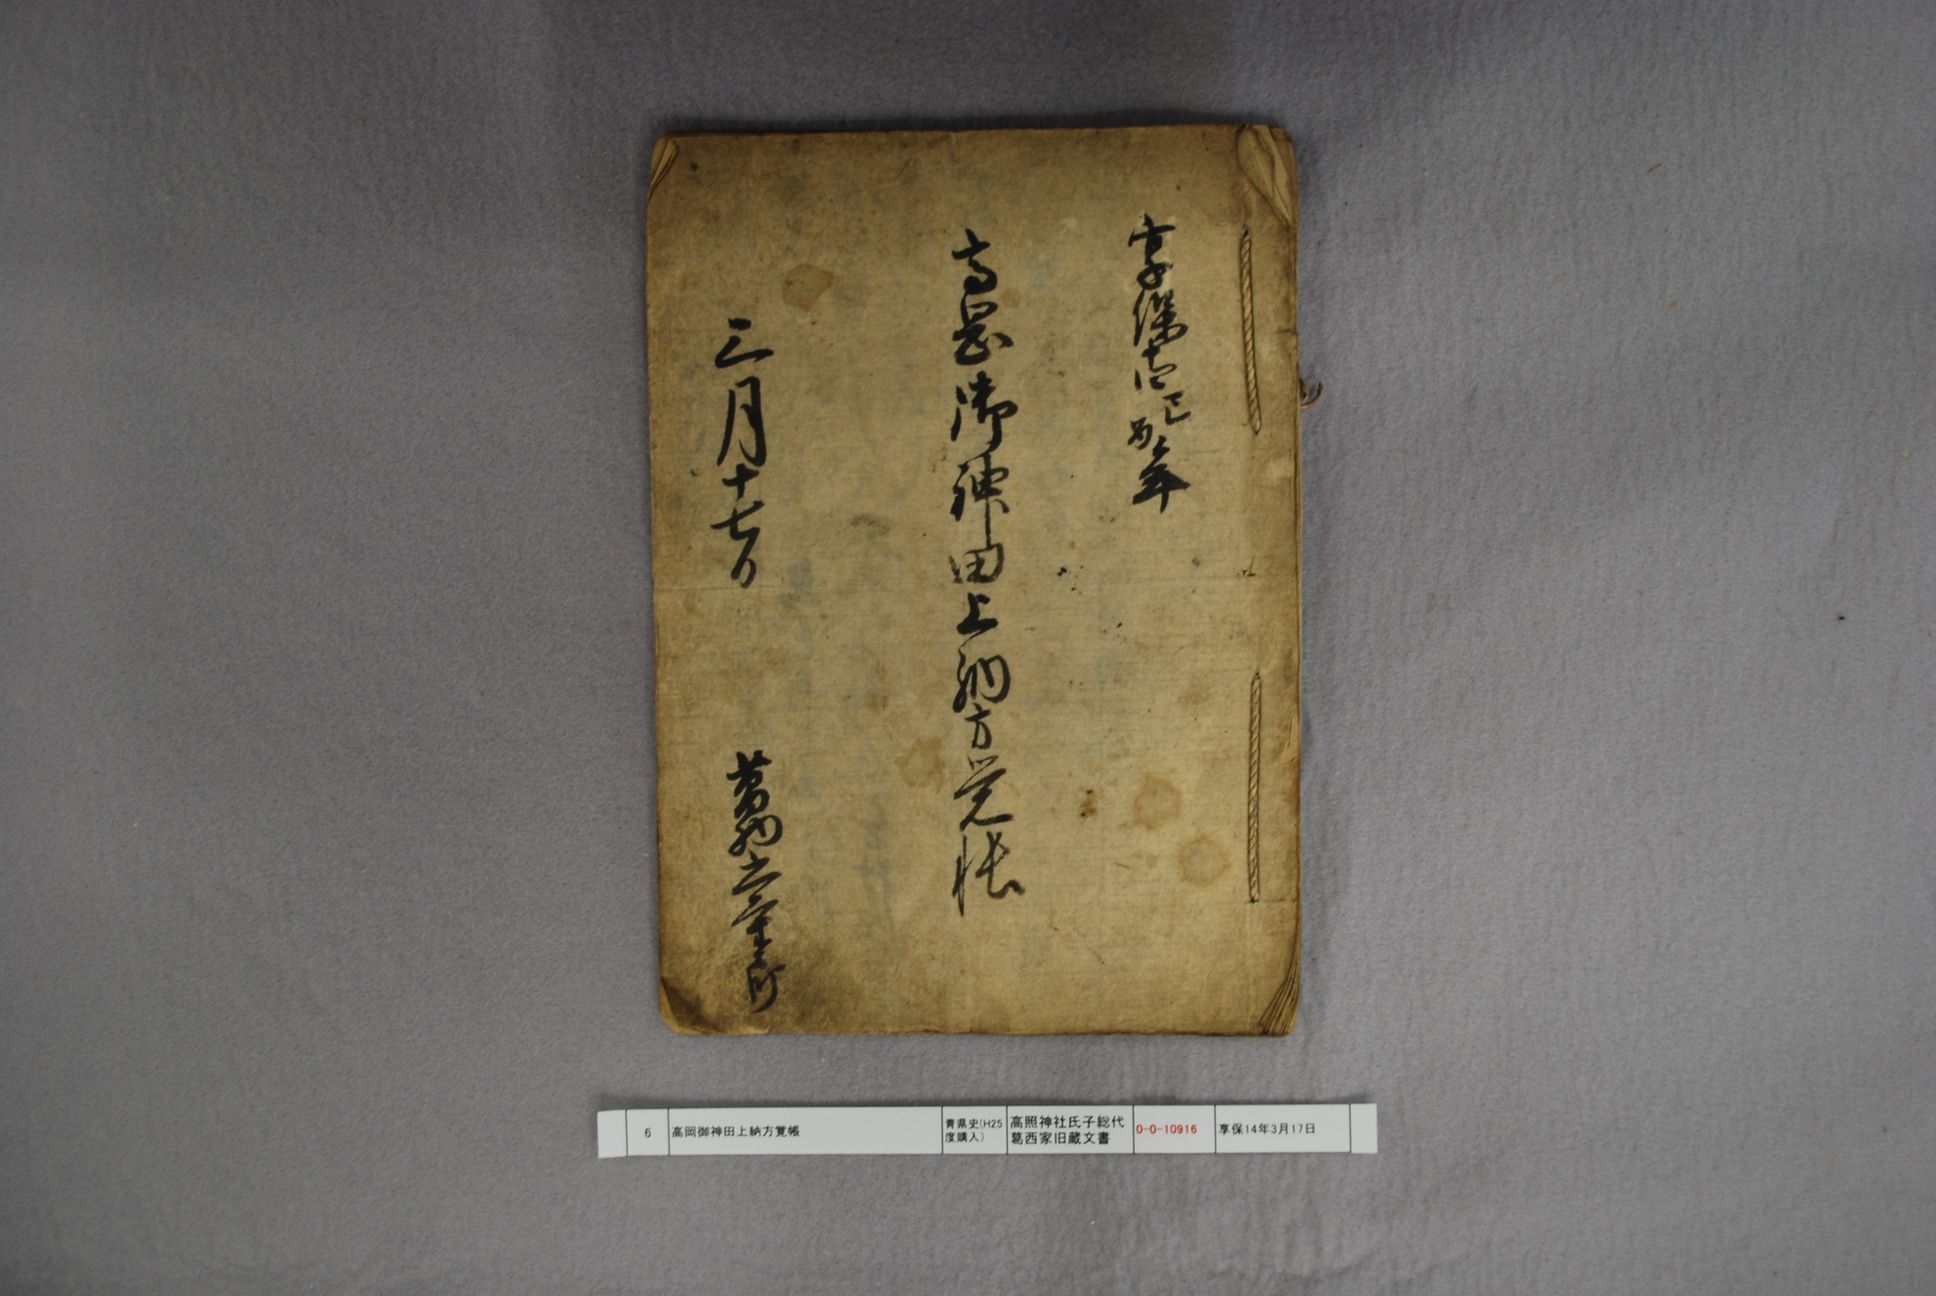 享保十四己酉年
高岡御神田上納方覚帳
三月十七日
葛西
6
高岡御神田上納方覚帳
青県史(H25
度購入)
高照神社氏子総代
葛西家旧蔵文書
0-0-10916
享保14年3月17日